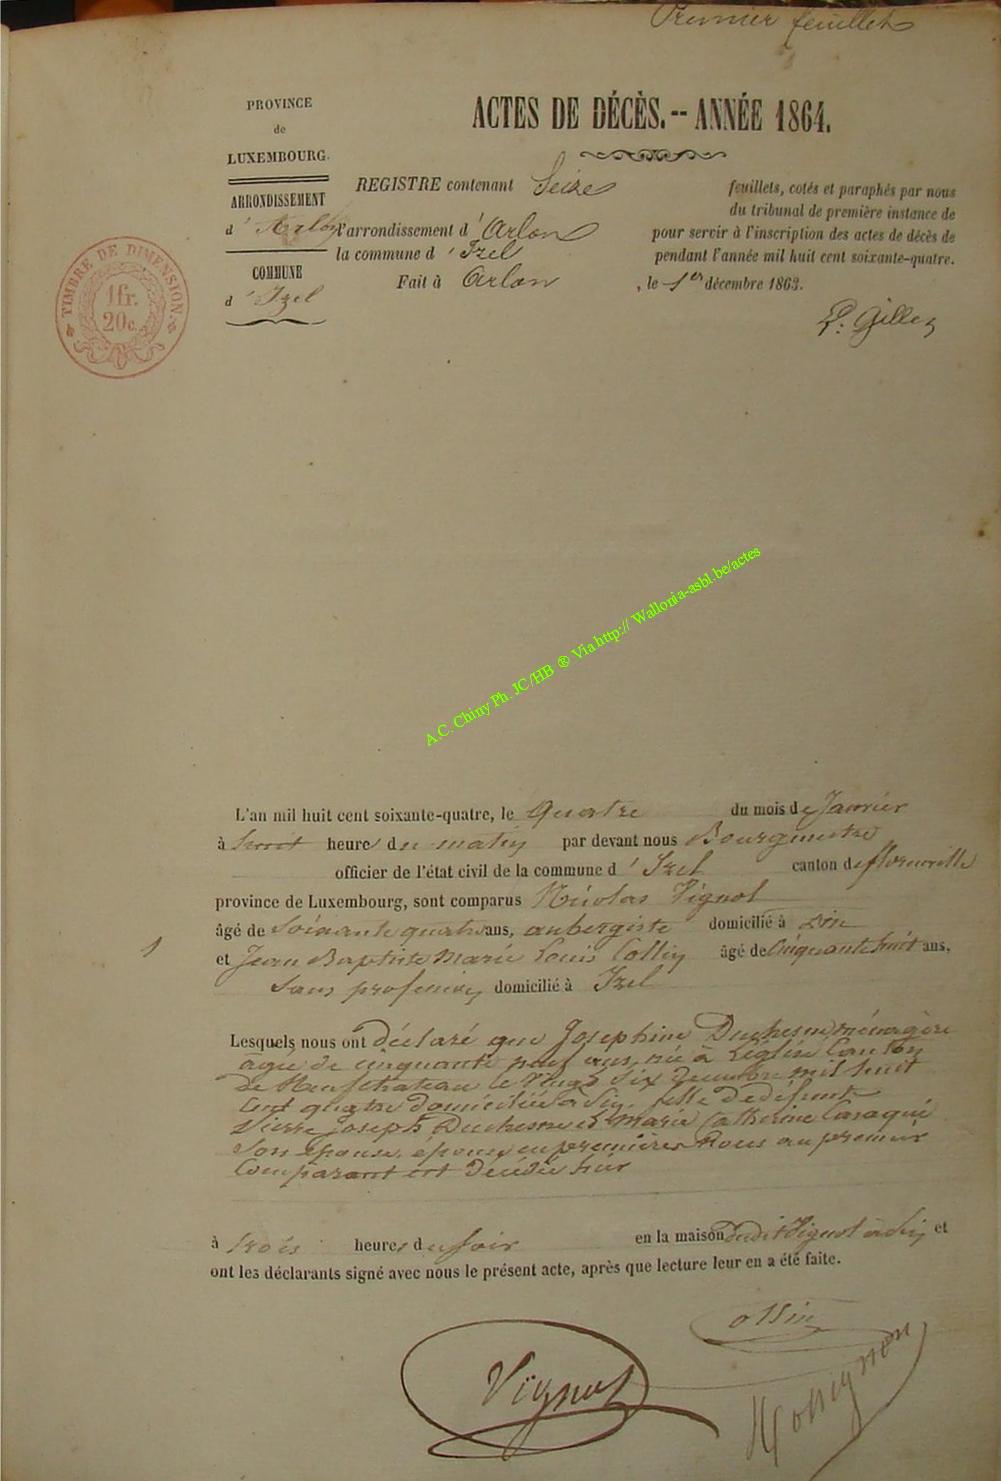 Premier feuillet
PROVINCE
de
LUXEMBOURG.
ARRONDISSEMENT
d'Arlon
COMMUNE
d'Izel
TIMBRE DE DIMENSION.
1 fr.
20 c.
ACTES DE DÉCÈS. -- ANNÉE 1864.
REGISTRE contenant Seize feuillets, cotés et paraphés par nous
du tribunal de première instance de
l'arrondissement d'Arlon pour servir à l'inscription des actes de décès de
la commune d'Izel pendant l'année mil huit cent soixante-quatre.
Fait à Arlon, le 1er décembre 1863.
A.C. Chiny Ph. JC/HB ® Via http:// Wallonia-asbl.be/actes
L'an mil huit cent soixante-quatre, le quatre du mois de Janvier
à huit heures du matin par devant nous Bourgmestre
officier de l'état civil de la commune d'Izel canton de florenville
province de Luxembourg, sont comparus Nicolas Vignol
âgé de Soixante quatre ans, aubergiste domicilié à
1
et Jean Baptiste Marie Louis Collin âgé de Cinquante huit ans,
Sans profession domicilié à Izel
Lesquels nous ont déclaré que Joséphine Duchesne ménagère
âgée de cinquante neuf ans, née à Léglise Canton
de Neufchateau le vingt Six mil huit
cent quatre domiciliée à fille de défunt
Pierre Joseph Duchesne et Marie Catherine
Son épouse, épouse en premières Noces au premier
Comparant est Décédée hier
à trois heures du soir en la maison dudit Vignol à et
ont les déclarants signé avec nous le présent acte, après que lecture leur en a été faite.
Vignol